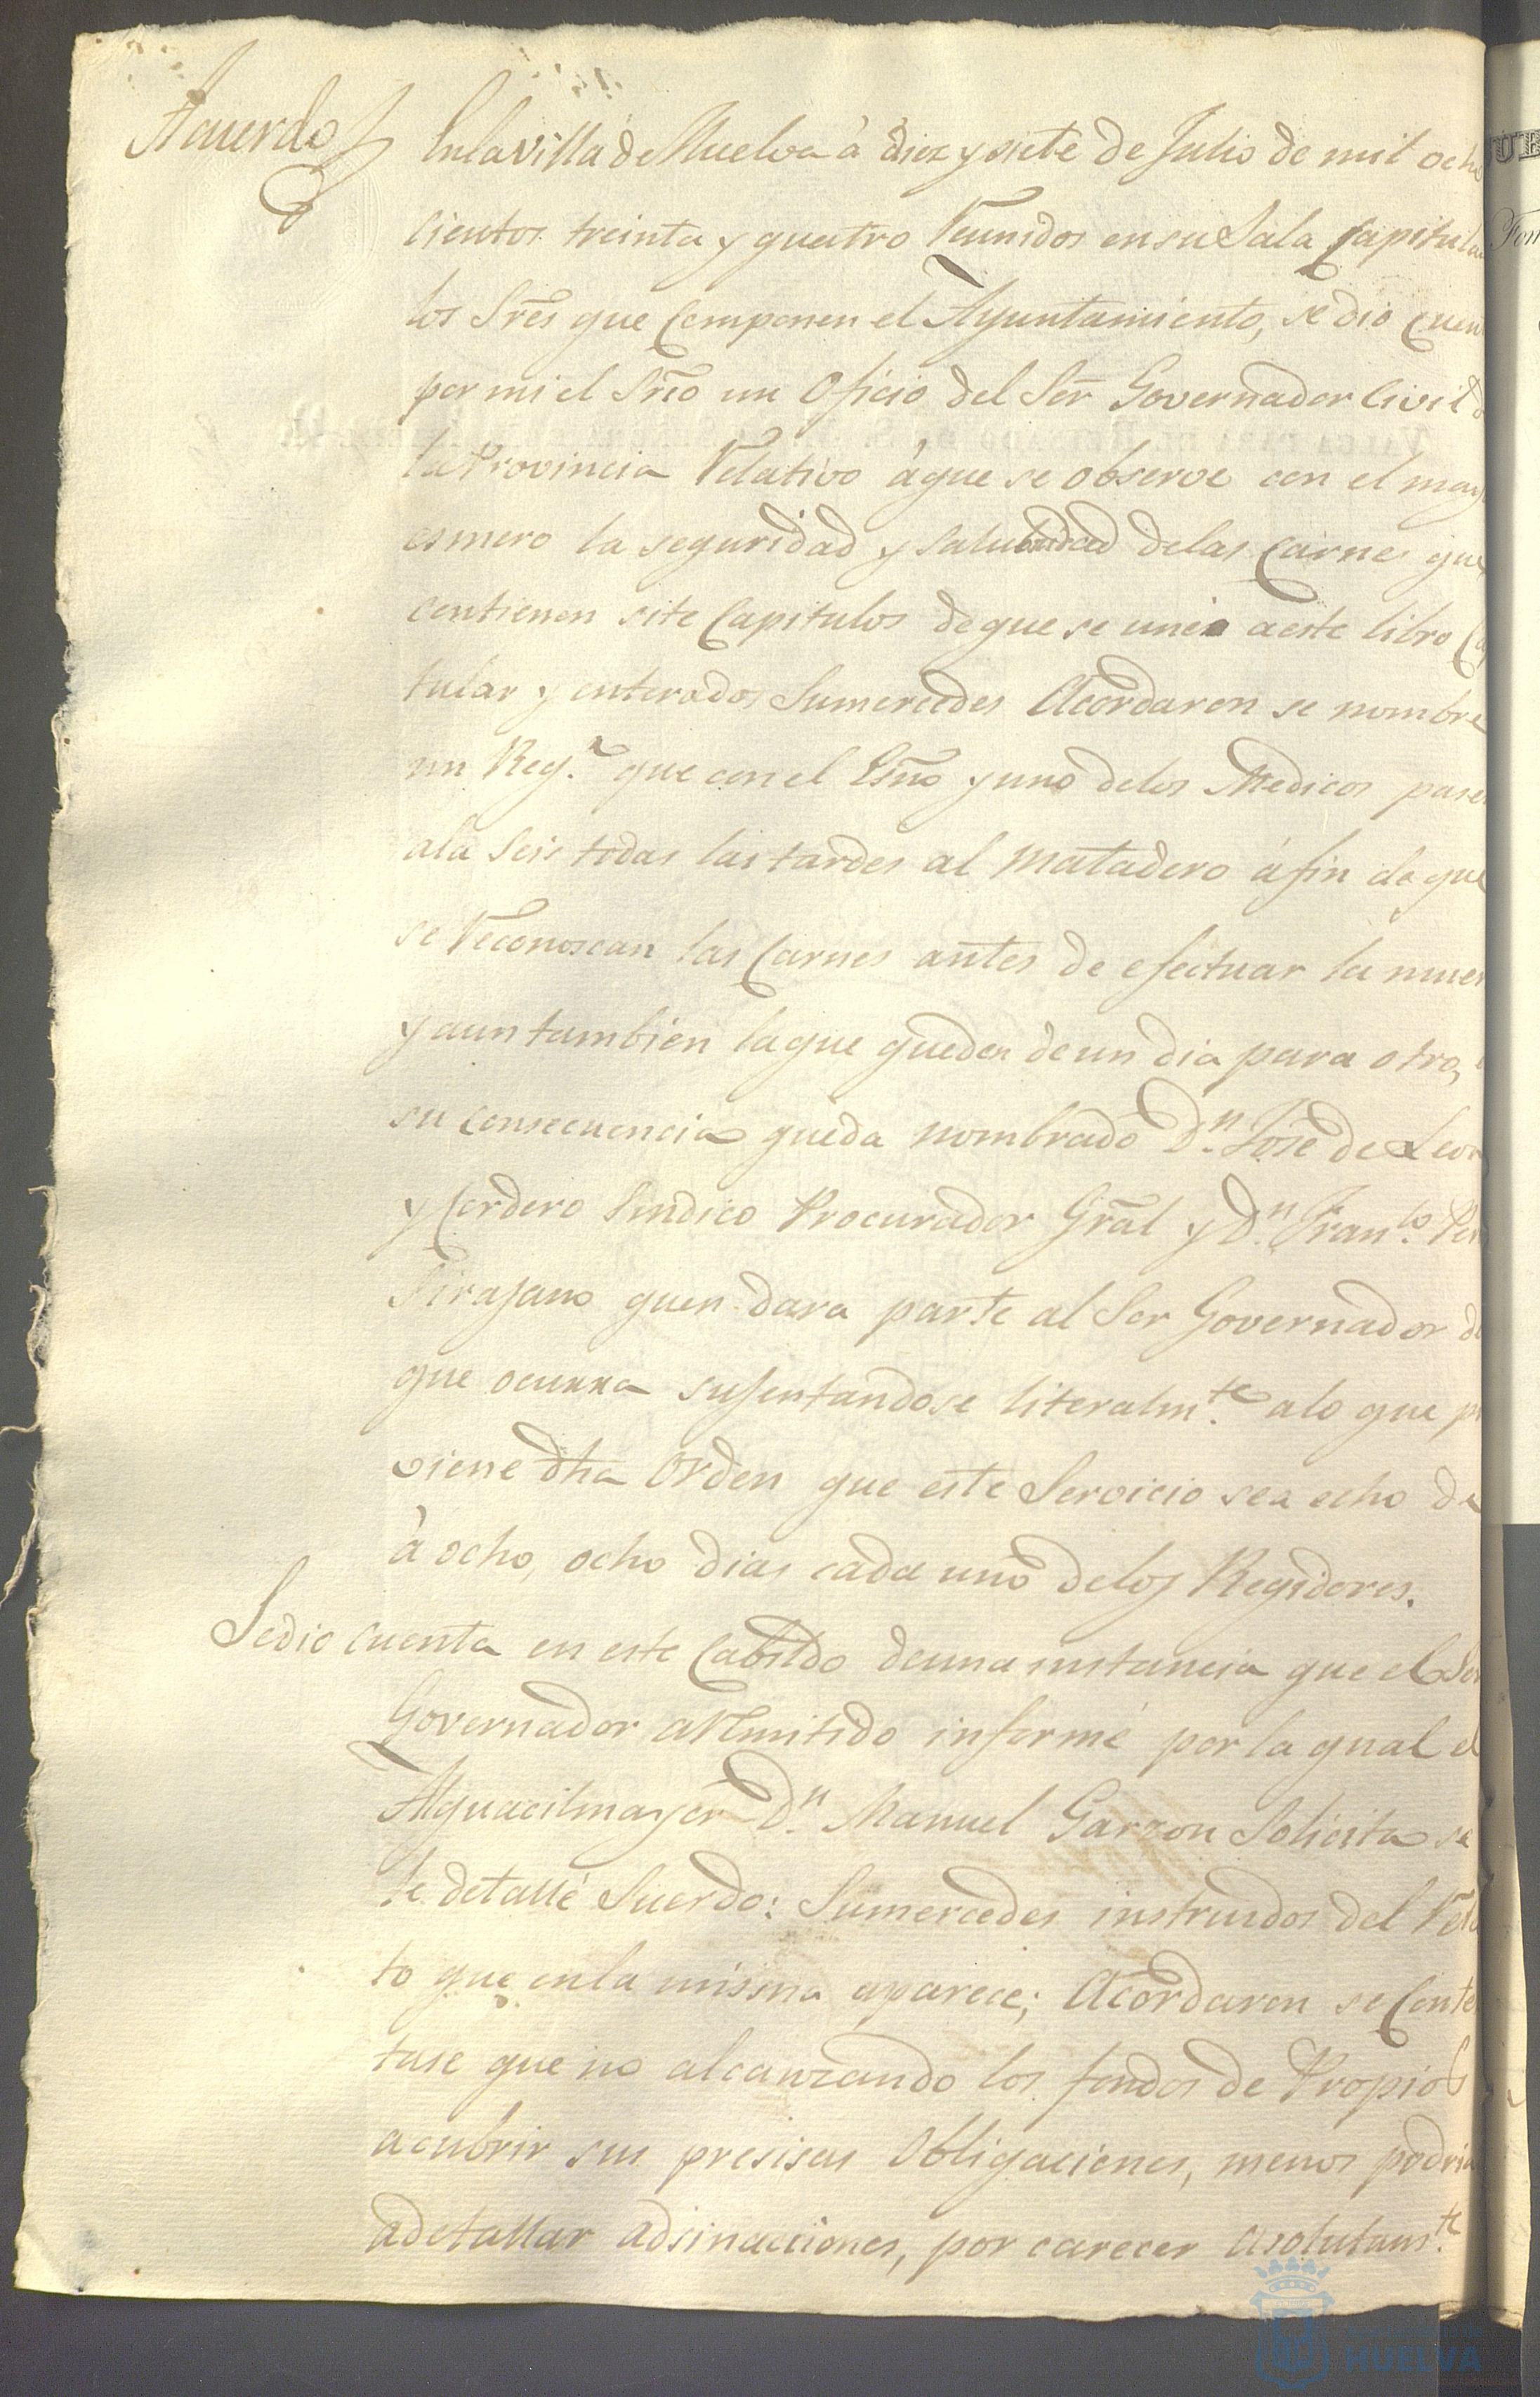 Acuerdo
En la villa de Huelva à diez y siete de Julio de mil ocho
cientos treinta y quatro Reunidos en su Sala Capitula
los Sres que Componen el Ayuntamiento, se dio cuen
por mi el Srio un Oficio del Señr Governador Civil d
la Provincia Relativo à que se observe con el may
esmero la seguridad y salubridad delas Carnes que
contienen site Capitulos de que se une aeste libro Ca
tular y enterados Sumercedes Acordaron se nombre
un Reg.r que con el Esno y uno delos Medicos pase
ala seis todas las tardes al Matadero à fin de que
se Reconoscan las Carnes antes de efectuar la muer
y aun tambien la que queda de un dia para otro,
su consecuencia queda nombrado D.n José de Leon
y Cordero Sindico Procurador Gral y D.n Fran.co Per
Tirajano quen dara parte al Ser Governador d
que ocurra sujentandose literalm.te alo que p
viene dha Orden que este Servicio sea echo de
à ocho, ocho dias cada uno delos Regidores.
Sedio cuenta en este Cabildo deuna instancia que el Ser
Governador a Remitido informe por la qual el
Alguacilmayor D.n Manuel Garzon Solicita se
le detalle Sueldo: Sumercedes instruidos del Rela
to que enla misma aparece; Acordaron se Conte
tase que no alcanzando los fondos de Propios
a cubrir sus presisas Obligaciones, menos podria
adetallar adsinacciones, por carecer asolutam.te
HUELVA